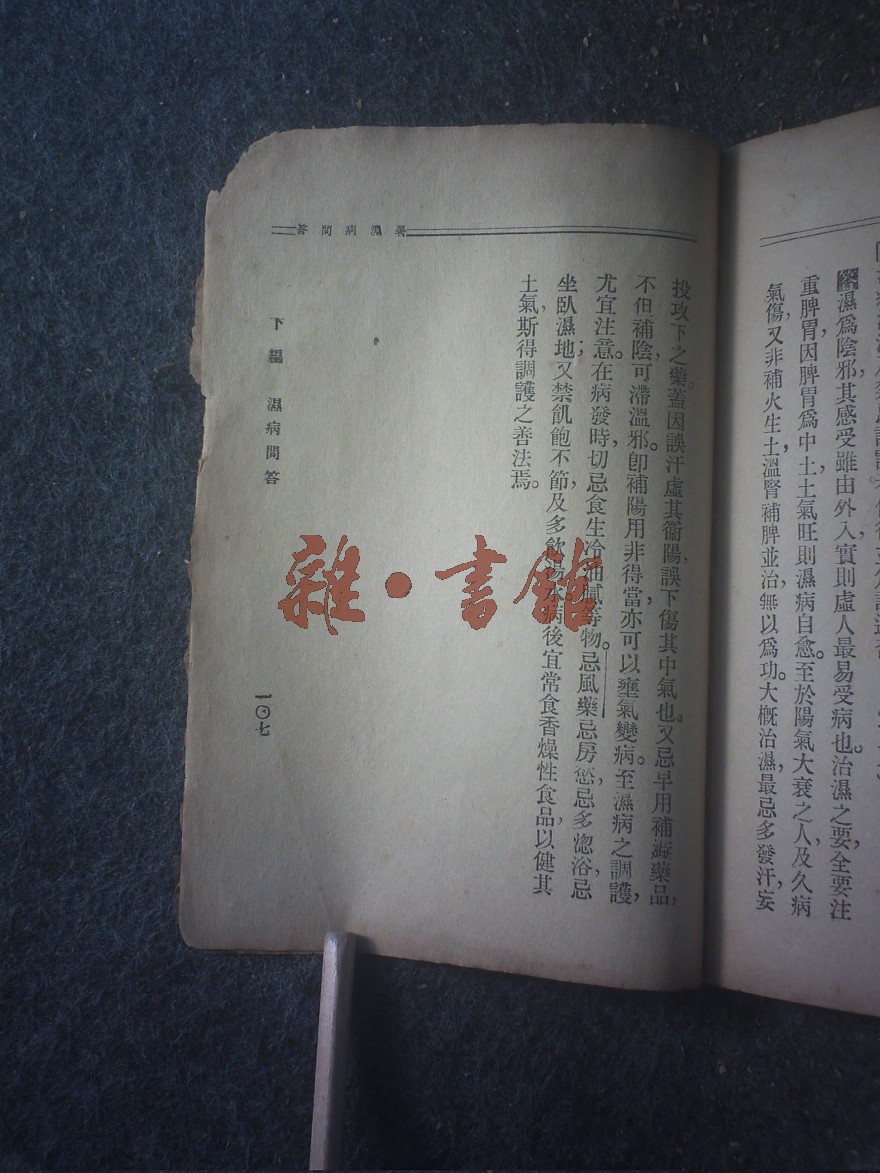 答濕爲陰邪，其感受雖由外入，實則虛人最易受病也。治濕之要，全要注
重脾胃，因脾胃爲中土，土氣旺則濕病自愈。至於陽氣大衰之人，及久病
氣傷，又非補火生土，溫腎補脾並治，無以爲功。大概治濕，最忌多發汗，妄
暑濕病問答
投攻下之藥。蓋因誤汗虛其衞陽，誤下傷其中氣也。又忌早用補澀藥品，
不但補陰可滯溫邪。卽補陽用非得當，亦可以壅氣變病。至濕病之調護，
尤宜注意。在病發時，切忌食生冷油膩等物。忌風藥，忌房慾，忌多惚浴，忌
坐臥濕地，又禁飢飽不節，及多飲湯水。病後宜常食香燥性食品，以健其
土氣，斯得調護之善法焉。
下編 濕病問答
一〇七
雜·書館